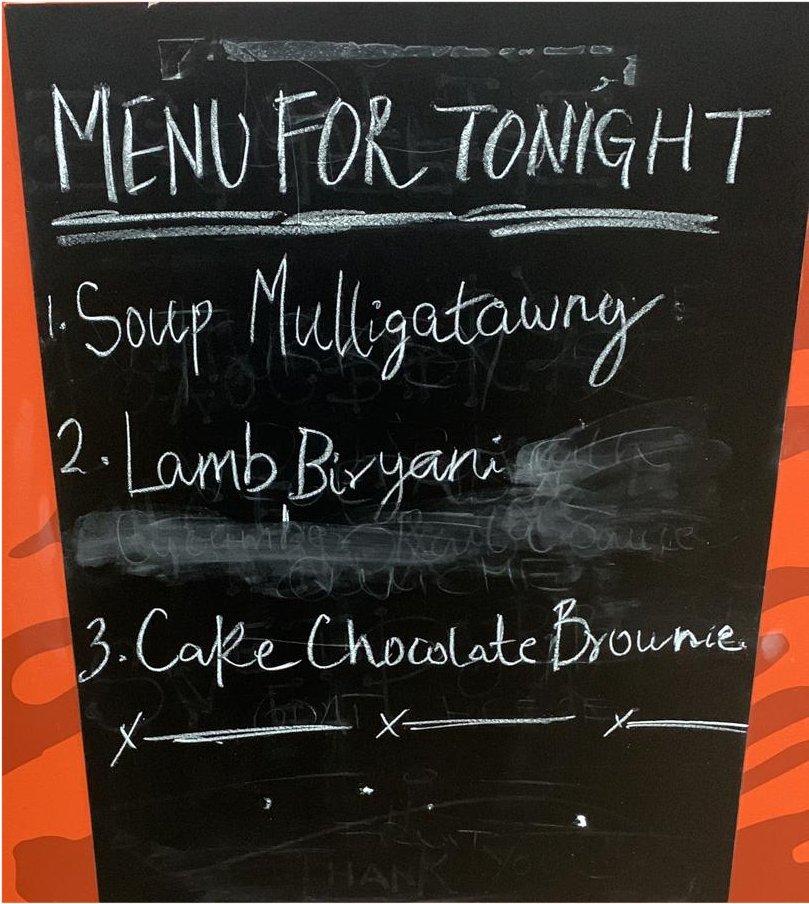 MENU FOR TONIGHT
1. Soup Mulligatawny
2. Lamb Biryani
3. Cake Chocolate Brownie
x x x
THANK